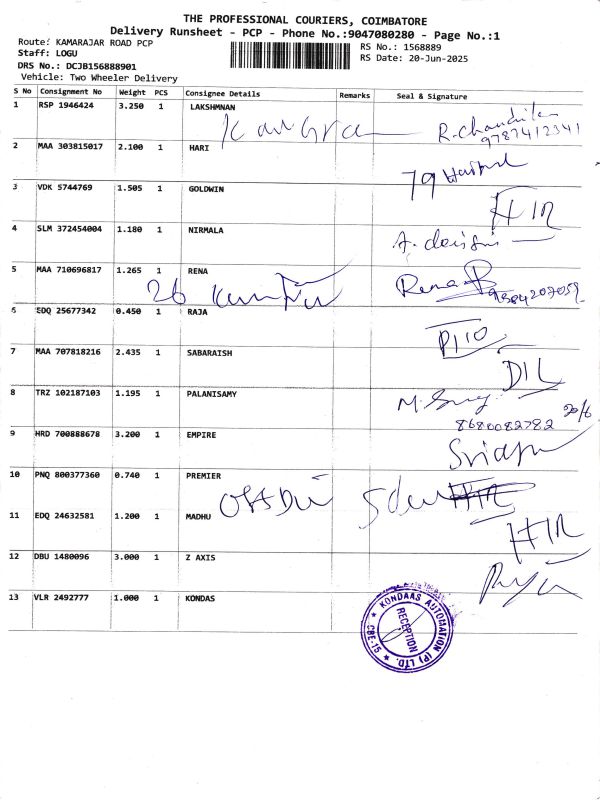 THE PROFESSIONAL COURIERS, COIMBATORE
Delivery Runsheet - PCP - Phone No.:9047080280 - Page No.:1
Route: KAMARAJAR ROAD PCP
RS No.: 1568889
Staff: LOGU
RS Date: 20-Jun-2025
DRS No.: DCJB156888901
Vehicle: Two Wheeler Delivery
S No Consignment No Weight PCS Consignee Details Remarks Seal & Signature
1 RSP 1946424 3.250 1 LAKSHMNAN
R. 9787412341
2 MAA 303815017 2.100 1 HARI
79
3 VDK 5744769 1.505 1 GOLDWIN
HIR
4 SLM 372454004 1.180 1 NIRMALA
A.
5 MAA 710696817 1.265 1 RENA
26 Rena 9384207059
6 EDQ 25677342 0.450 1 RAJA
P110
7 MAA 707818216 2.435 1 SABARAISH
DIL
8 TRZ 102187103 1.195 1 PALANISAMY
M. 20/6
8680082782
9 HRD 700888678 3.200 1 EMPIRE
10 PNQ 800377360 0.740 1 PREMIER
11 EDQ 24632581 1.200 1 MADHU
HIR
12 DBU 1480096 3.000 1 Z AXIS
13 VLR 2492777 1.000 1 KONDAS
KONDAAS AUTOMATION (P) LTD.
RECEPTION
* CBE-15 *